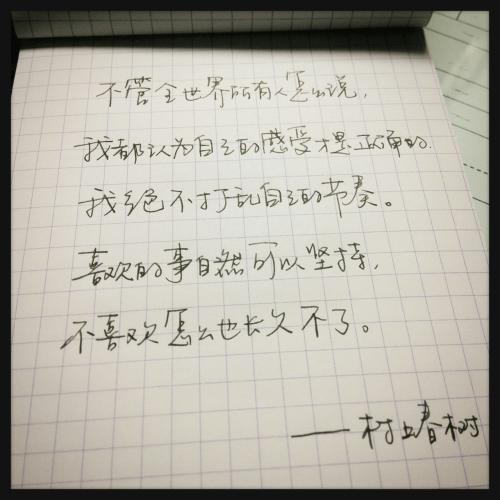 不管全世界所有人怎么说，
我都认为自己的感受才是正确的.
我绝不打乱自己的节奏。
喜欢的事自然可以坚持,
不喜欢怎么也长久不了。
——村上春树